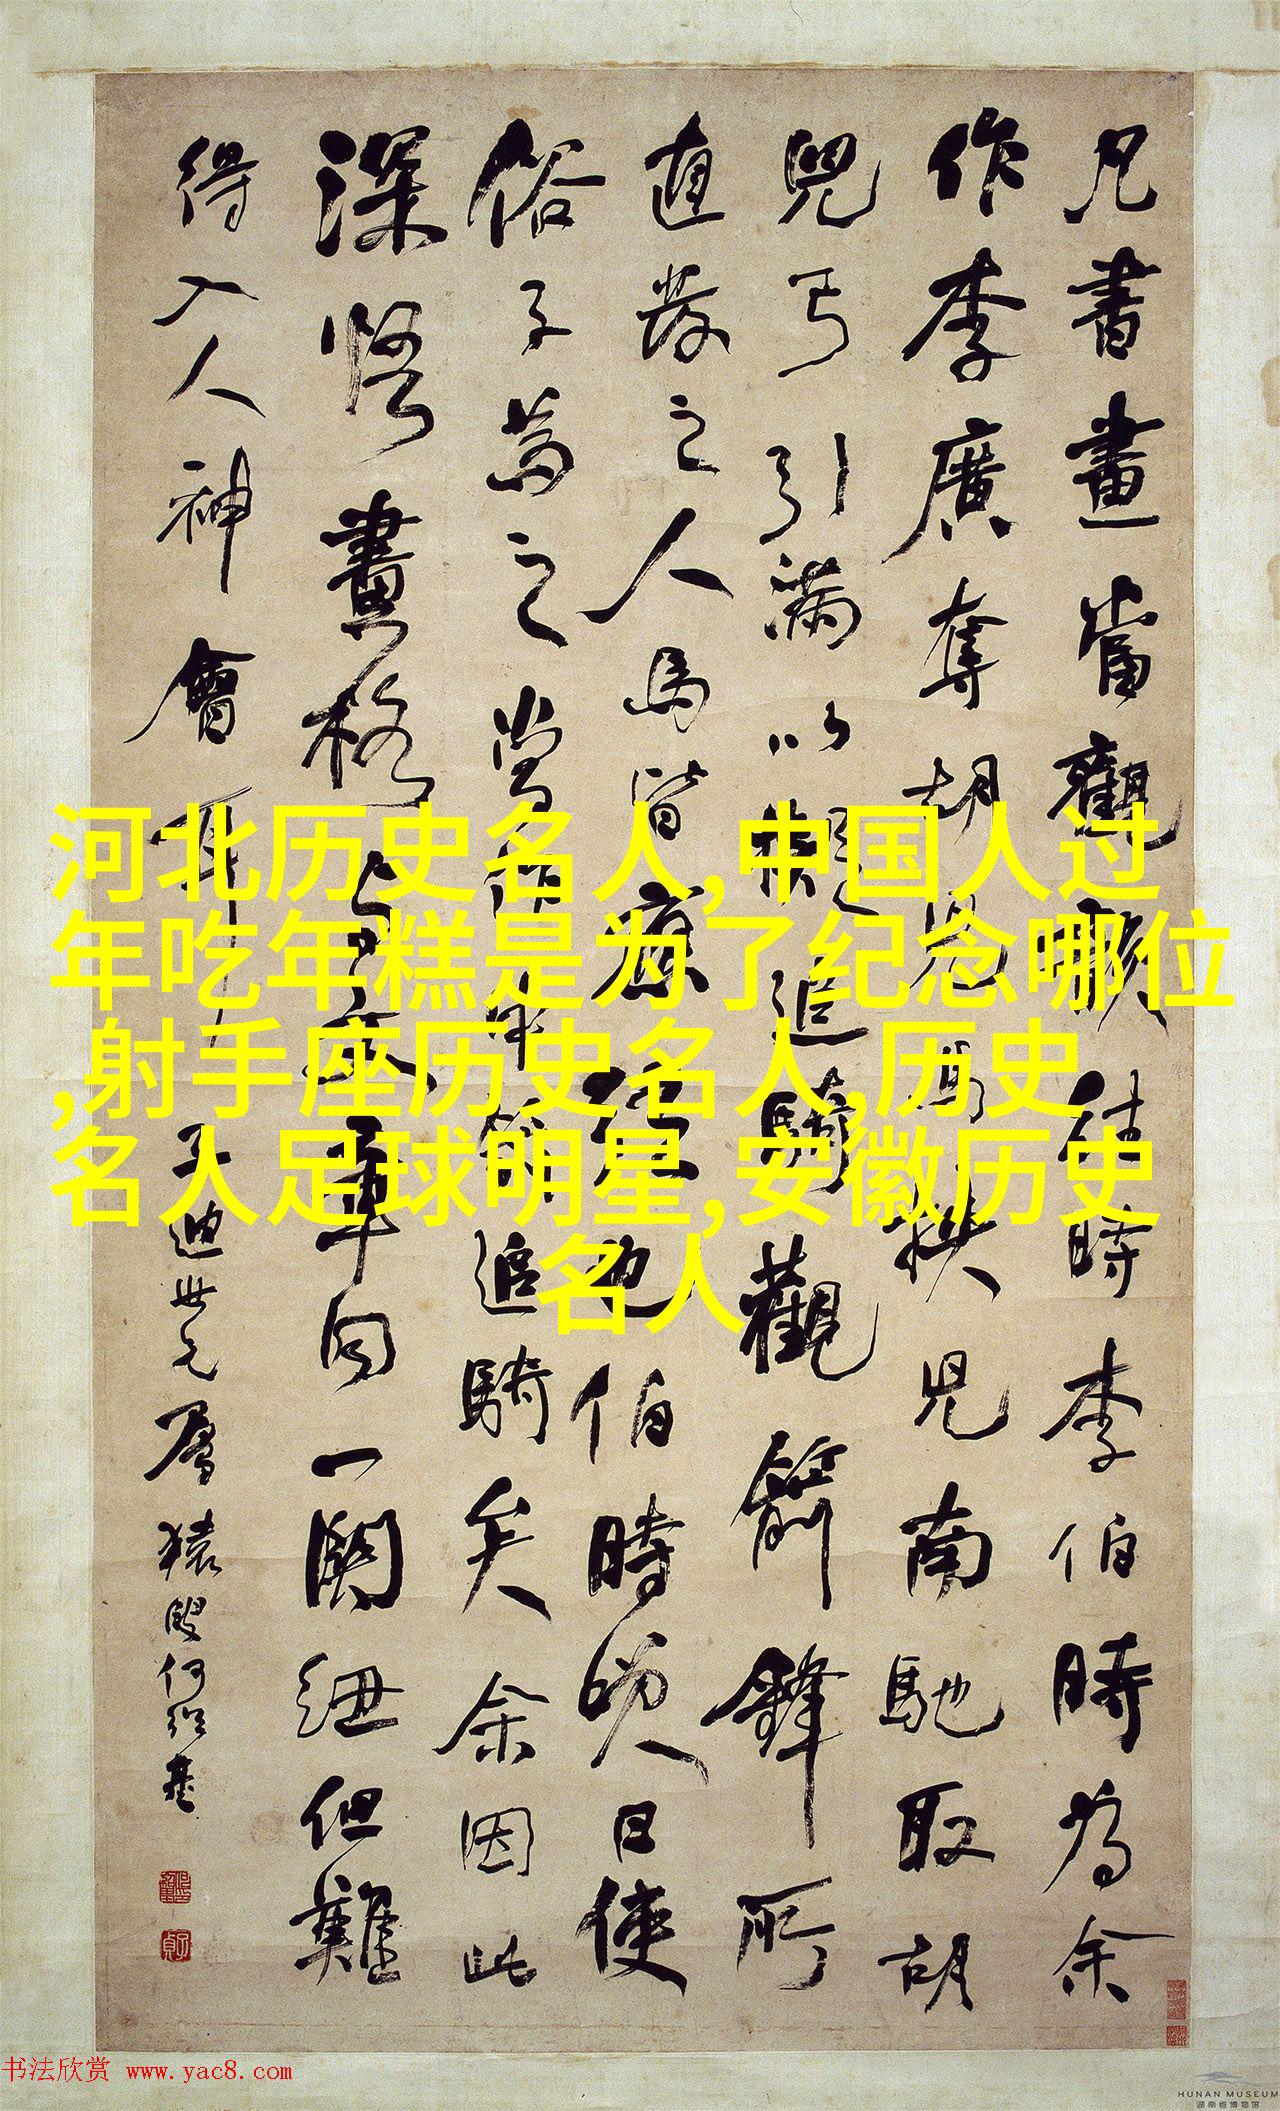 凡書畫當觀韻往時李伯時為余
作李廣奪胡兒馬挾兒南馳取胡
兒弓引滿以擬追騎觀箭鋒所
直發之人馬皆應弦也伯時笑曰使
俗子為之當作中箭追騎矣余因此
深悟畫格此與文章同一關紐但難
得入人神會耳
子迪世元屬 猿叟何紹基
河北历史名人,中国人过
年吃年糕是为了纪念哪位
,射手座历史名人,历史
名人足球明星,安徽历史
名人
书法欣赏 www.yac8.com
HUNAN MUSEUM
湖南省博物馆